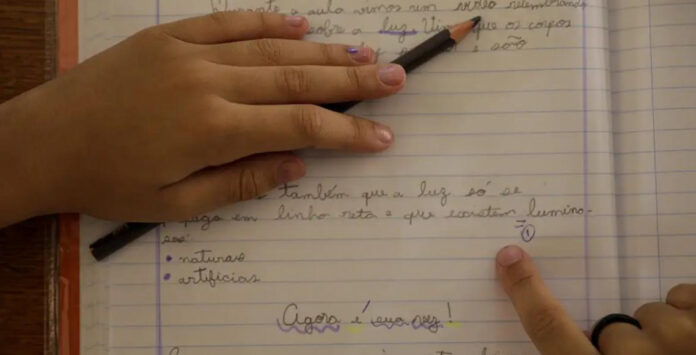 Durante a aula vimos um vídeo relembrando
sobre a luz. Vimos que os corpos
e são
também que a luz só se
paga em linha reta e que existem lumino-
sos
①
• naturais
• artificias
Agora é sua vez!